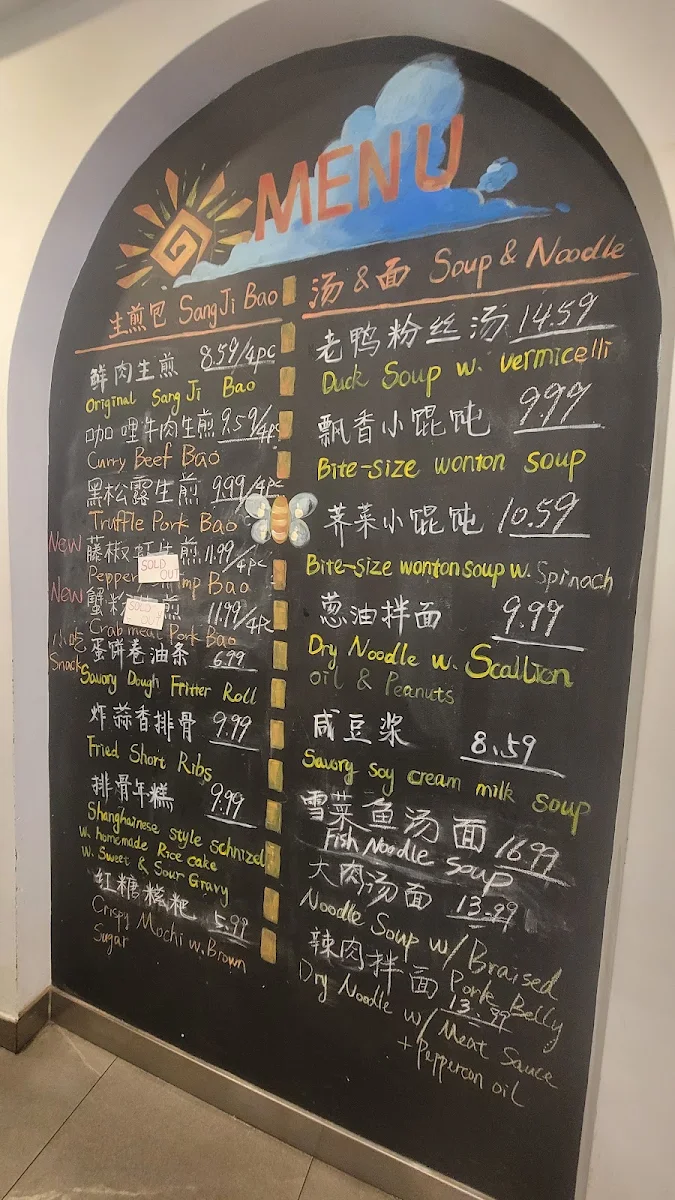 MENU
生煎包 SangJi Bao
鲜肉生煎 8.59/4pc
Original Sang Ji Bao
咖哩牛肉生煎 9.59/4pc
Curry Beef Bao
黑松露生煎 9.99/4pc
Truffle Pork Bao
New 藤椒虾生煎 11.99/4pc
SOLD OUT
Pepper Bao
New 蟹粉 煎 11.99/4pc
SOLD OUT
Crab meat Pork Bao
小吃 蛋饼卷油条 6.99
Snack Savory Dough Fritter Roll
炸蒜香排骨 9.99
Fried Short Ribs
排骨年糕 9.99
Shanghainese style schnizel
w. homemade Rice cake
w. Sweet & Sour Gravy
红糖糍粑 5.99
Crispy Mochi w. Brown
Sugar
汤 & 面 Soup & Noodle
老鸭粉丝汤 14.59
Duck Soup w. vermicelli
飘香小馄饨 9.99
Bite-size wonton soup
荠菜小馄饨 10.59
Bite-size wonton soup w. Spinach
葱油拌面 9.99
Dry Noodle w. Scallion
oil & Peanuts
咸豆浆 8.59
Savory soy cream milk soup
雪菜鱼汤面 16.99
Fish Noodle Soup
大肉汤面 13.99
Noodle Soup w/ Braised
Pork Belly
辣肉拌面 13.99
Dry Noodle w/ Meat Sauce
+ Peppercon oil